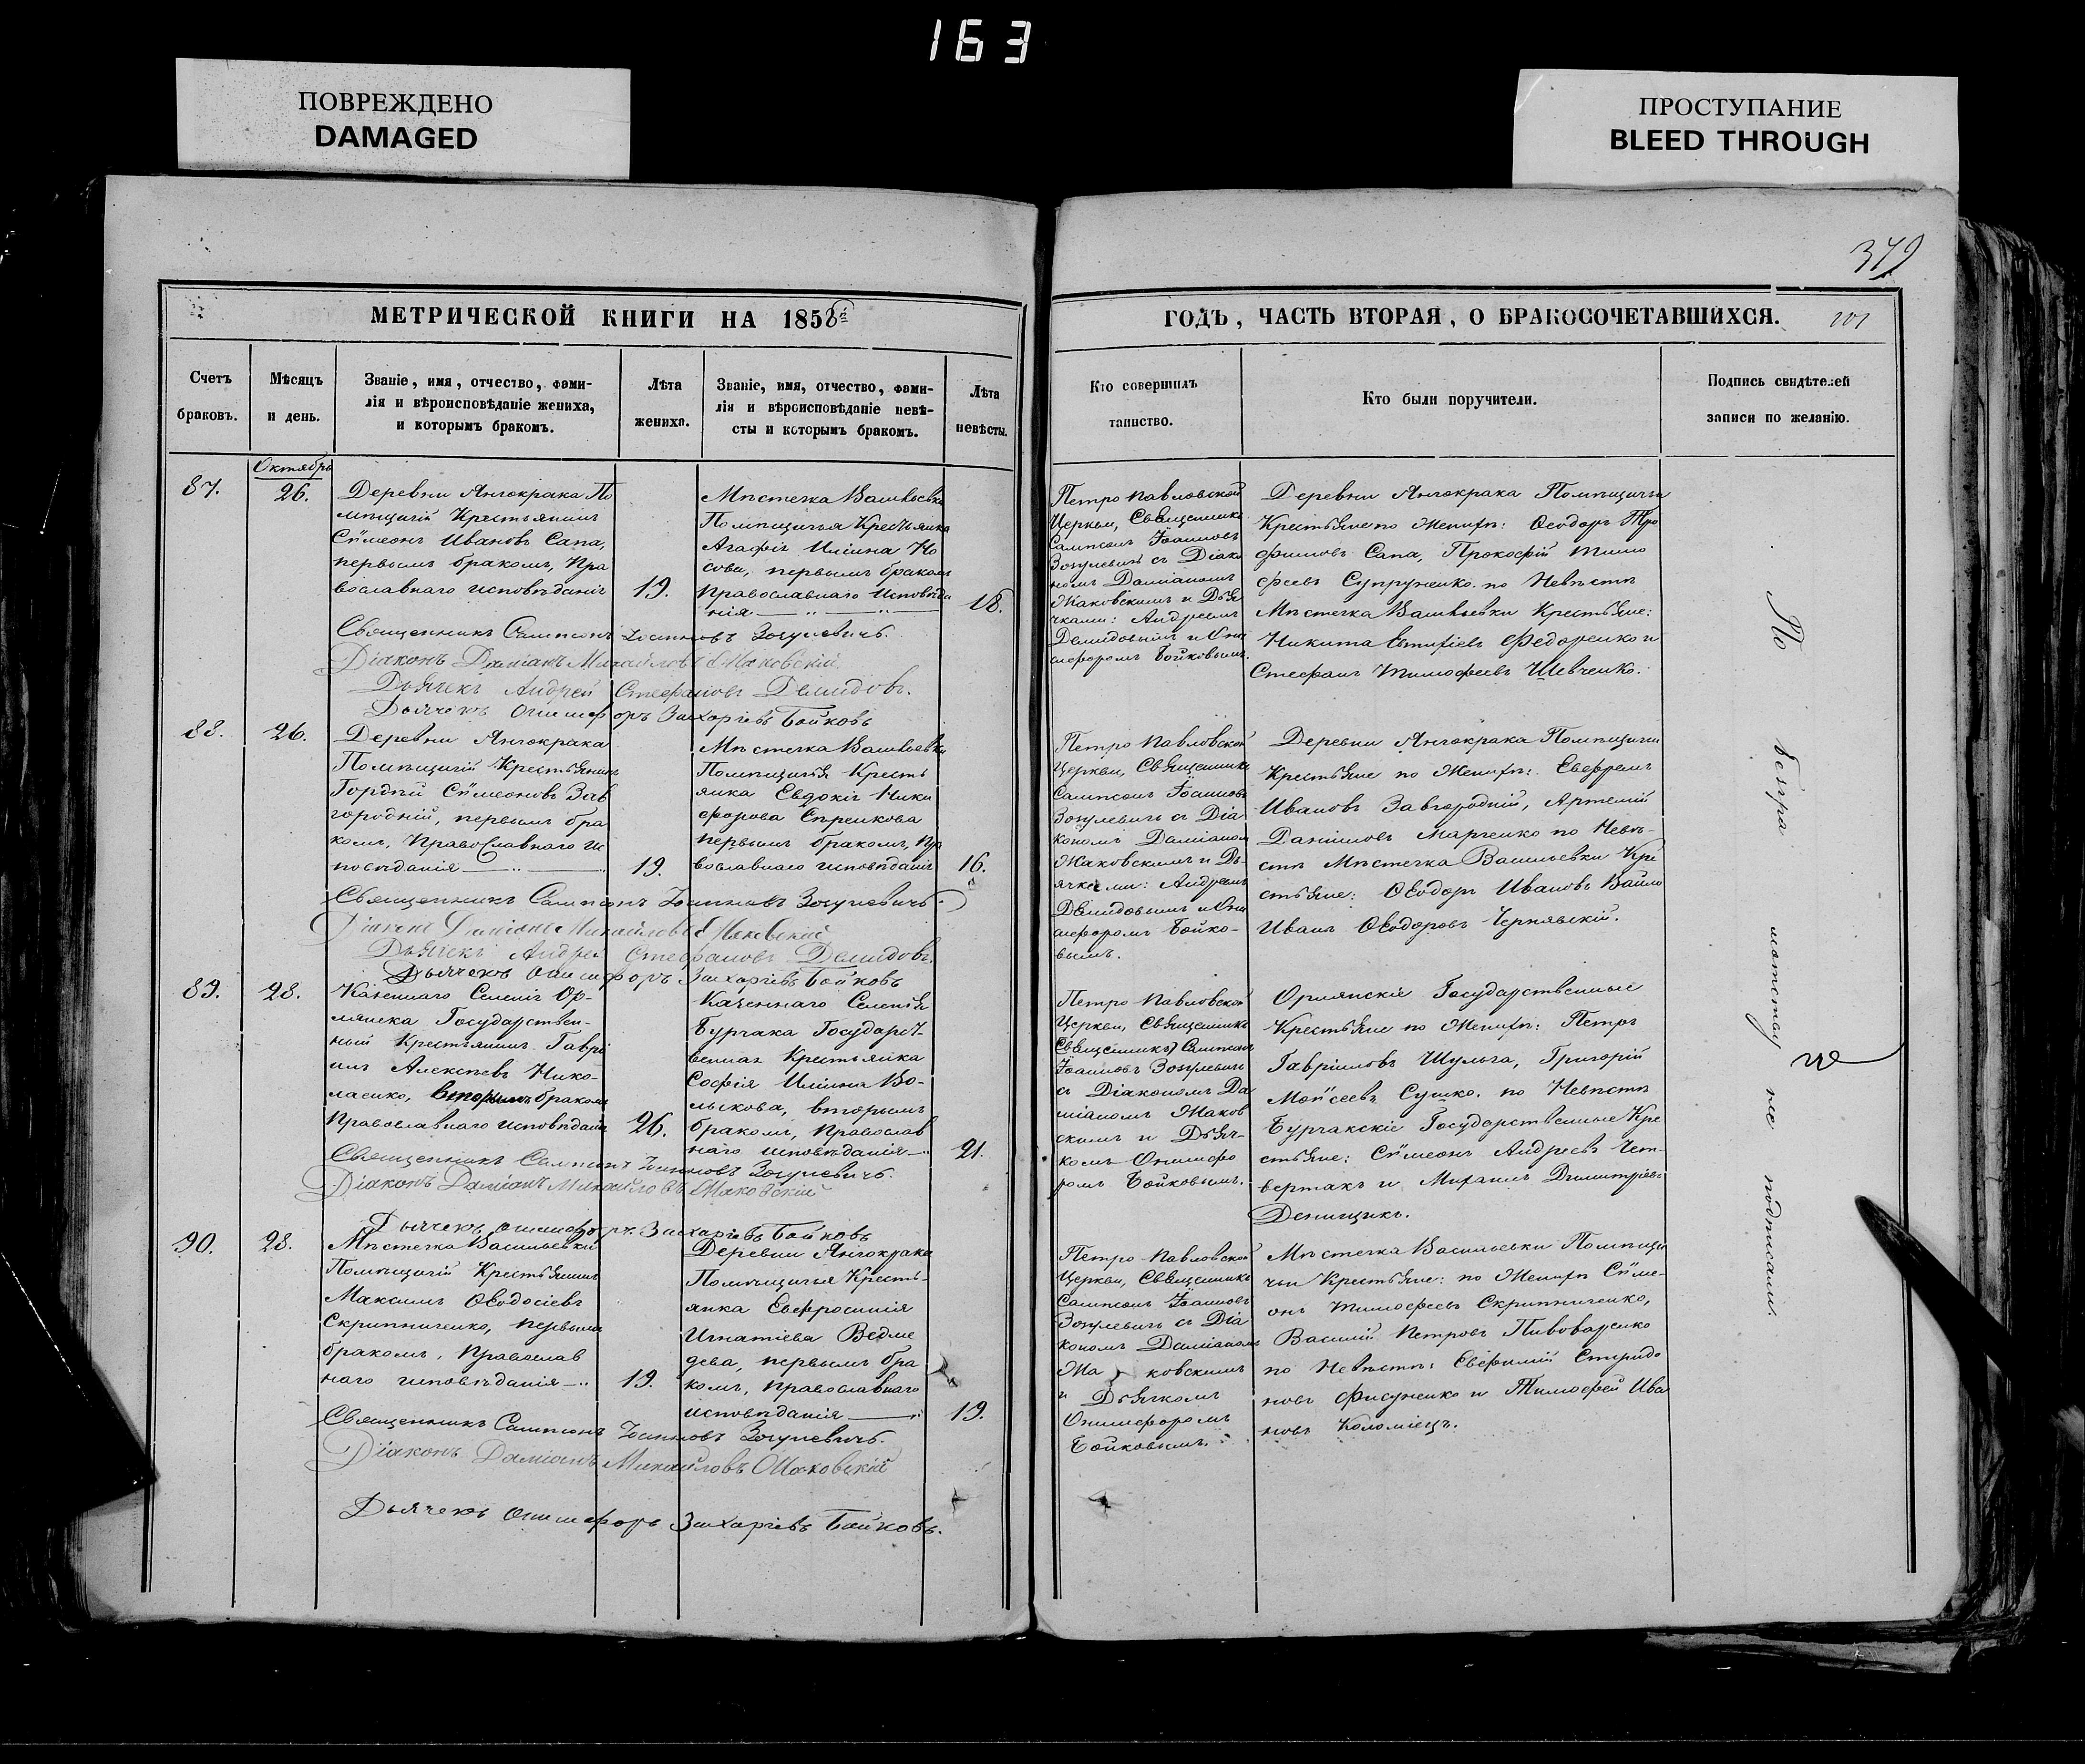 163
ПОВРЕЖДЕНО
DAMAGED
ПРОСТУПАНИЕ
BLEED THROUGH
379
МЕТРИЧЕСКОЙ КНИГИ НА 1858й
ГОДЪ, ЧАСТЬ ВТОРАЯ, О БРАКОСОЧЕТАВШИХСЯ.
101
Счетъ
браковъ.
Мѣсяцъ
и день.
Званіе, имя, отчество, фами-
лія и вѣроисповѣданіе жениха,
и которымъ бракомъ.
Лѣта
жениха.
Званіе, имя, отчество, фами-
лія и вѣроисповѣданіе невѣ-
сты и которымъ бракомъ.
Лѣта
невѣсты.
Кто совершилъ
таинство.
Кто были поручители.
Подпись свидѣтелей
записи по желанію.
87.
Октябрь
26.
Деревни Янчокрака По
мѣщичій Крестьянинъ
Сѵмеонъ Ивановъ Сапа,
первымъ бракомъ, Пра
вославнаго исповѣданія
19.
Мѣстечка Васильевки
Помѣщичья Крестьянка
Агафія Иліина Но
сова, первымъ бракомъ
Православнаго Исповѣда
нія
18.
Петро Павловской
Церкви, Священникъ
Сампсонъ Іоанновъ
Зозулевичъ съ Діако
номъ Даміаномъ
Маковскимъ и Дья
чками: Андреемъ
Демидовымъ и Они
сифоромъ Бойковымъ.
Деревни Янчокрака Помѣщичьи
Крестьяне по Женихѣ: Ѳеодоръ Тро
фимовъ Сапа, Прокофій Тимо
феевъ Супруненко. по Невѣстѣ
Мѣстечка Васильевки Крестьяне:
Никита Евтихіевъ Федоренко и
Стефанъ Тимофеевъ Шевченко.
Священникъ Сампсонъ Іоанновъ Зозулевичъ.
Діаконъ Даміанъ Михайловъ Маковскій
Дьячекъ Андрей Стефановъ Демидовъ.
Дьячекъ Онисифоръ Захаріевъ Бойковъ
88.
26.
Деревни Янчокрака
Помѣщичій Крестьянинъ
Гордѣй Сѵмеоновъ Зав
городній, первымъ бра
комъ, Православнаго Ис
повѣданія
19.
Мѣстечка Васильевки
Помѣщичья Кресть
янка Евдокія Ники
форова
первымъ бракомъ, Пра
вославнаго исповѣданія
16.
Петро Павловской
Церкви, Священникъ
Сампсонъ Іоанновъ
Зозулевичъ съ Діа
кономъ Даміаномъ
Маковскимъ и Дь-
ячками: Андреемъ
Демидовымъ и Они
сифоромъ Бойко-
вымъ.
Деревни Янчокрака Помѣщичьи
Крестьяне по Женихѣ: Евфремъ
Ивановъ Завгородній, Артемій
Даніиловъ Марченко по Невѣ-
стѣ Мѣстечка Васильевки Кре
стьяне: Ѳеодоръ Ивановъ
Иванъ Ѳеодоровъ Чернявскій.
Священникъ Сампсонъ Іоанновъ Зозулевичъ.
Діаконъ Даміанъ Михайловъ Маковскій
Дьячекъ Андрей Стефановъ Демидовъ.
Дьячекъ Онисифоръ Захаріевъ Бойковъ
89.
28.
Казеннаго Селенія Ор-
лянска Государствен-
ный Крестьянинъ Гаврі
илъ Алексѣевъ Нико-
лаенко, вторымъ бракомъ
Православнаго исповѣданія
26.
Казеннаго Селенія
Бурчака Государст-
венная Крестьянка
Софія Иліина Во-
лькова, вторымъ
бракомъ, Православ
наго исповѣданія
21.
Петро Павловской
Церкви, Священникъ
Священникъ Сампсонъ
Іоанновъ Зозулевичъ
съ Діакономъ Да
міаномъ Маков
скимъ и Дьяч-
комъ Онисифо
ромъ Бойковымъ.
Орлянскіе Государственные
Крестьяне по Женихѣ: Петръ
Гавріиловъ Шульга, Григорій
Моѵсеевъ Сушко. по Невѣстѣ
Бурчакскіе Государственные Кре
стьяне: Сѵмеонъ Андреевъ Чет-
вертакъ и Михаилъ Димитріевъ
Денищикъ.
Священникъ Сампсонъ Іоанновъ Зозулевичъ.
Діаконъ Даміанъ Михайловъ Маковскій
Дьячекъ Онисифоръ Захаріевъ Бойковъ
90.
28.
Мѣстечка Васильевки
Помѣщичій Крестьянинъ
Максимъ Ѳеодосіевъ
Скрипниченко, первымъ
бракомъ, Православ
наго исповѣданія
19.
Деревни Янчокрака
Помѣщичья Кресть-
янка Евфросинія
Игнатіева Ведме
дева, первымъ бра
комъ, православнаго
исповѣданія
19.
Петро Павловской
Церкви, Священникъ
Сампсонъ Іоанновъ
Зозулевичъ съ Діа
кономъ Даміаномъ
Маковскимъ
и Дьячкомъ
Онисифоромъ
Бойковымъ.
Мѣстечка Васильевки Помѣщи
чьи Крестьяне: по Женихѣ Сѵме-
онъ Тимофеевъ Скрипниченко,
Василій Петровъ Пивоваренко
по Невѣстѣ: Евфимій Спиридо
новъ Фисуненко и Тимофей Ива
новъ Коломіецъ.
Священникъ Сампсонъ Іоанновъ Зозулевичъ.
Діаконъ Даміанъ Михайловъ Маковскій
Дьячекъ Онисифоръ Захаріевъ Бойковъ.
По безгра мотству не подписали.